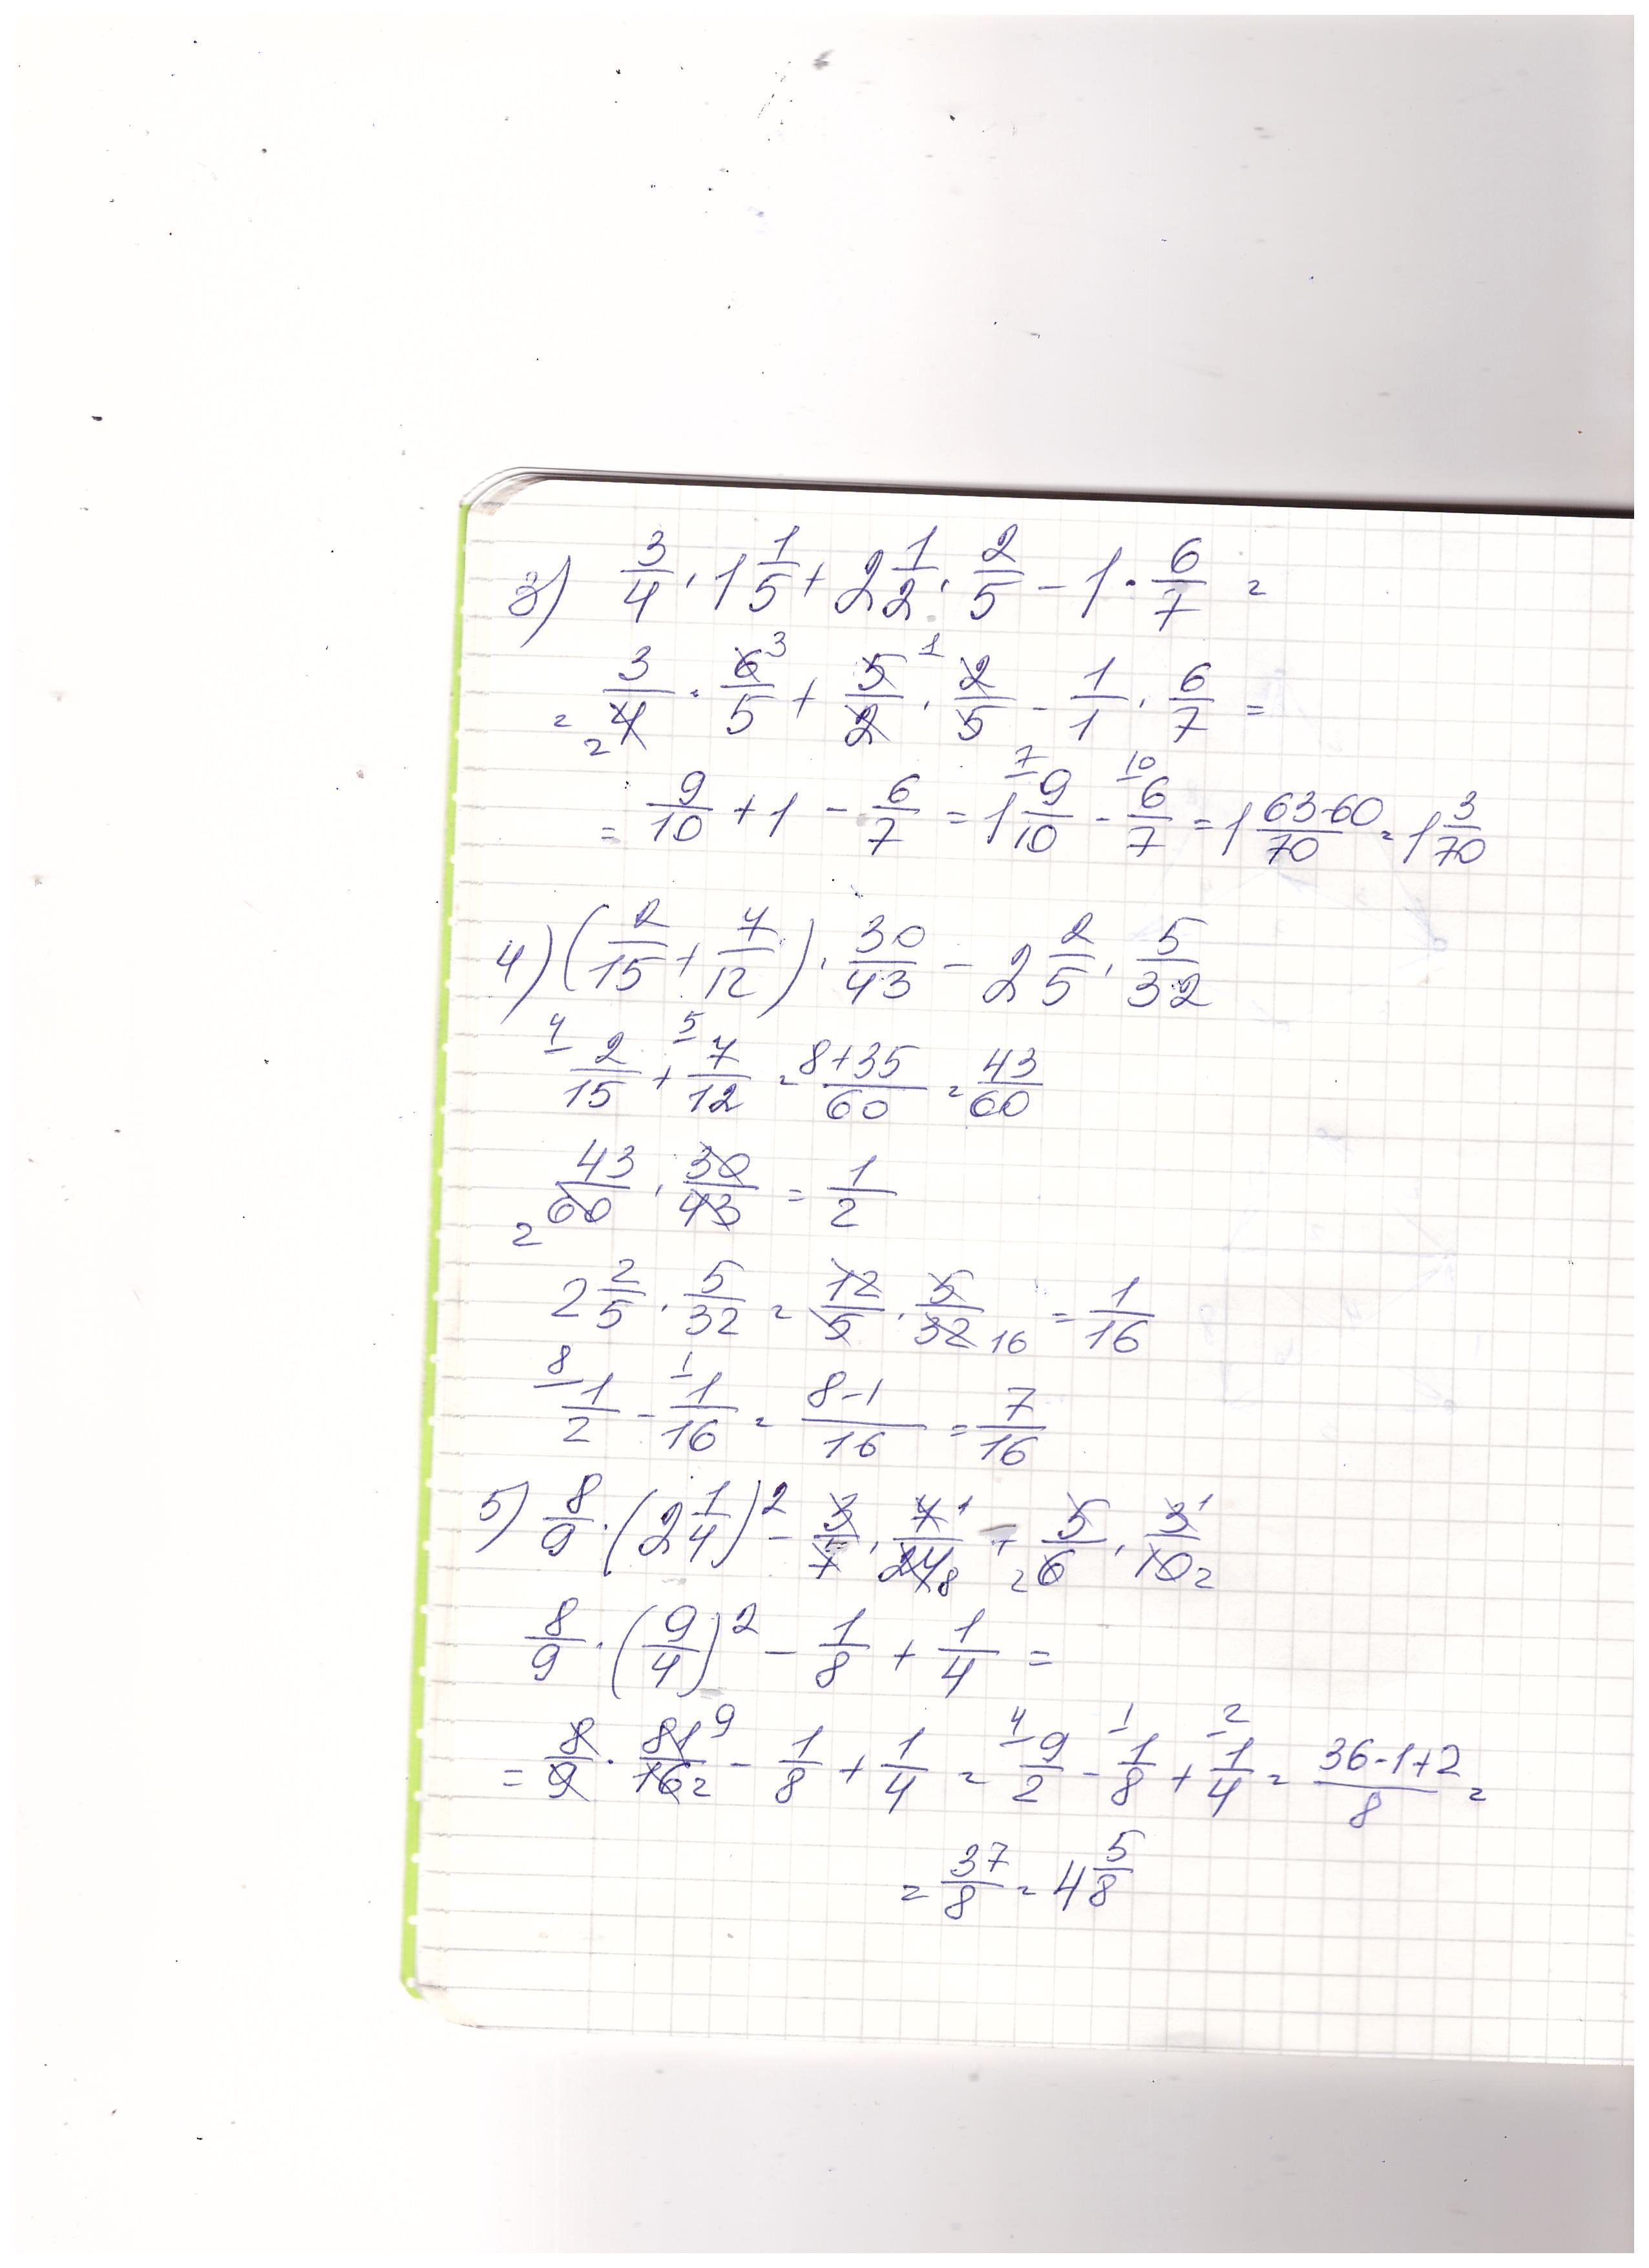 3) 3/4 · 1 1/5 + 2 1/2 · 2/5 - 1 · 6/7 =
= 3/4 2 · 6/5 3 + 5/2 1 · 2/5 - 1/1 · 6/7 =
= 9/10 + 1 - 6/7 = 1 9/10 7 - 6/7 10 = 1 63-60/70 = 1 3/70
4) (2/15 + 7/12) · 30/43 - 2 2/5 · 5/32
4 2/15 + 5 7/12 = 8+35/60 = 43/60
43/60 2 · 30/43 = 1/2
2 2/5 · 5/32 = 12/5 · 5/32 16 = 1/16
8 1/2 - 1 1/16 = 8-1/16 = 7/16
5) 8/9 · (2 1/4)² - 3/7 · 7 1/24 8 + 5/6 2 · 3 1/10 2
8/9 · (9/4)² - 1/8 + 1/4 =
= 8/9 · 81 9/16 2 - 1/8 + 1/4 = 4 9/2 - 1 1/8 + 2 1/4 = 36-1+2/8 =
= 37/8 = 4 5/8